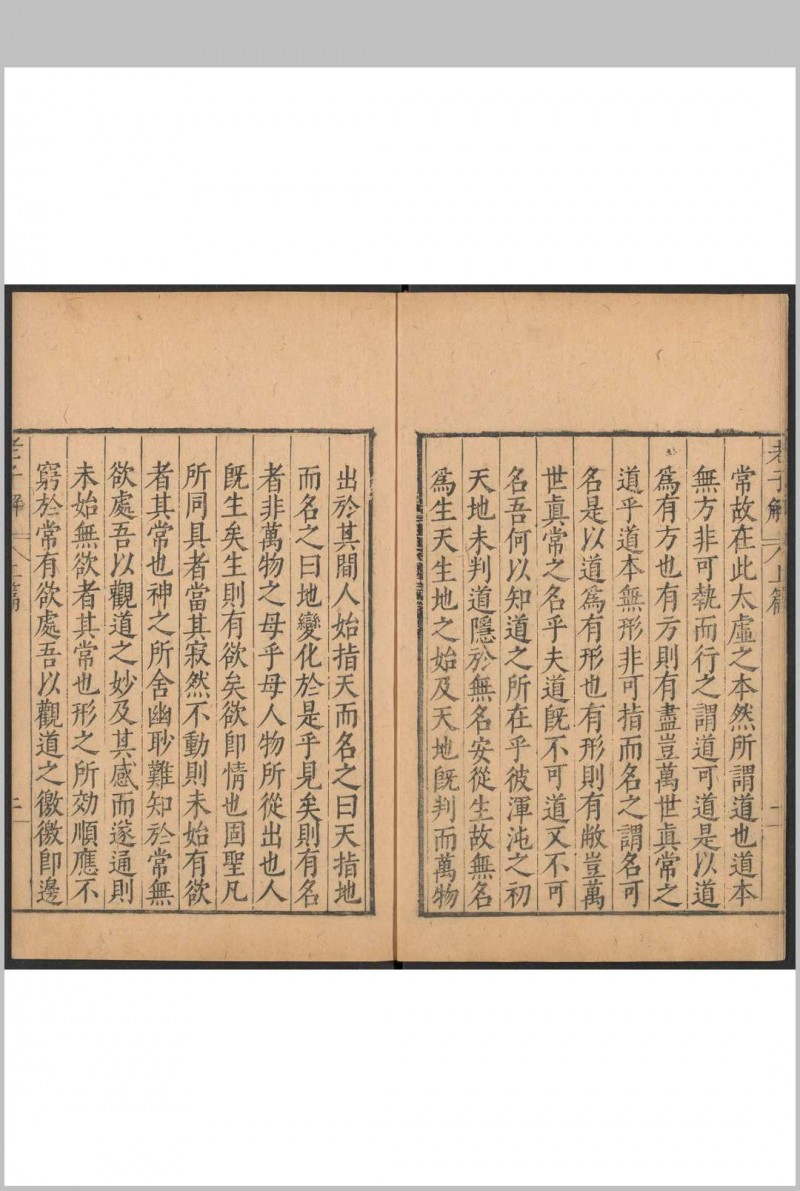 老子解 上篇 二
常故在此太虛之本然所謂道也道本
無方非可執而行之謂道可道是以道
爲有方也有方則有盡豈萬世眞常之
道乎道本無形非可指而名之謂名可
名是以道爲有形也有形則有敝豈萬
世眞常之名乎夫道旣不可道又不可
名吾何以知道之所在乎彼渾沌之初
天地未判道隱於無名安從生故無名
爲生天生地之始及天地旣判而萬物
出於其間人始指天而名之曰天指地
而名之曰地變化於是乎見矣則有名
者非萬物之母乎母人物所從出也人
旣生矣生則有欲矣欲卽情也固聖凡
所同具者當其寂然不動則未始有欲
者其常也神之所舍幽眇難知於常無
欲處吾以觀道之妙及其感而遂通則
未始無欲者其常也形之所効順應不
窮於常有欲處吾以觀道之徼徼卽邊
老子解 上篇 二